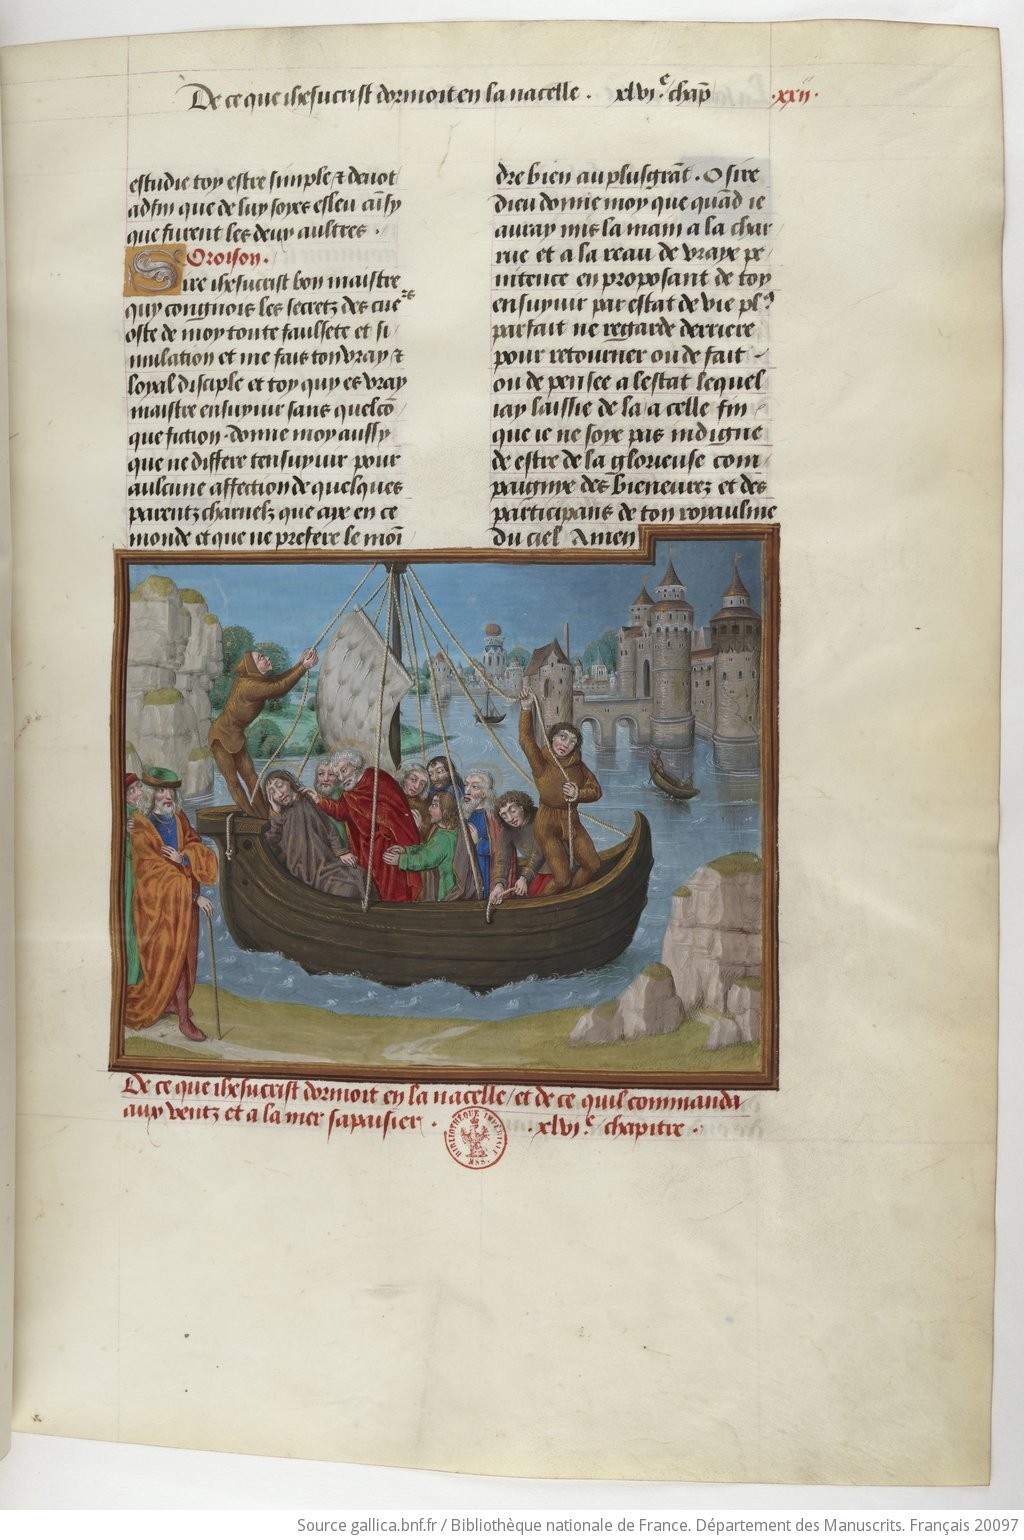 De ce que ihesucrist dormoit en la nacelle . xlvi.e chap̃
.xxii.
estudie toy estre simple ⁊ deuot
adfin que de luy soyes esleu aĩsy
que furent les deux aultres .
Oroison .
Sire ihesucrist bon maistre
quy congnois les secretz des cuers
oste de moy toute faulsete et si
mulation et me fais ton vray ⁊
loyal disciple et toy quy es vray
maistre ensuyuir sans quelcõ
que fiction . donne moy aussy
que ne differe tensuyuir pour
aulcune affection de quelques
parentz charnelz que aye en ce
monde et que ne prefere le moĩ
dre bien au plus grãt . O sire
dieu donne moy que quãd ie
auray mis la main a la char
rue et a la reau de vraye pe
nitence en proposant de toy
ensuyuir par estat de vie plꝰ
parfait ne regarde derriere
pour retourner ou de fait
ou de pensee a lestat lequel
iay laissie de la a celle fin
que ie ne soye pas indigne
de estre de la glorieuse com
paignye des bieneurez et des
participans de ton royaulme
du ciel Amen
De ce que ihesucrist dormoit en la nacelle / et de ce quil commanda
aux ventz et a la mer sapaisier . .xlvi.e chapitre .
BIBLIOTHÈQUE IMPÉRIALE
MSS.
Source gallica.bnf.fr / Bibliothèque nationale de France. Département des Manuscrits. Français 20097